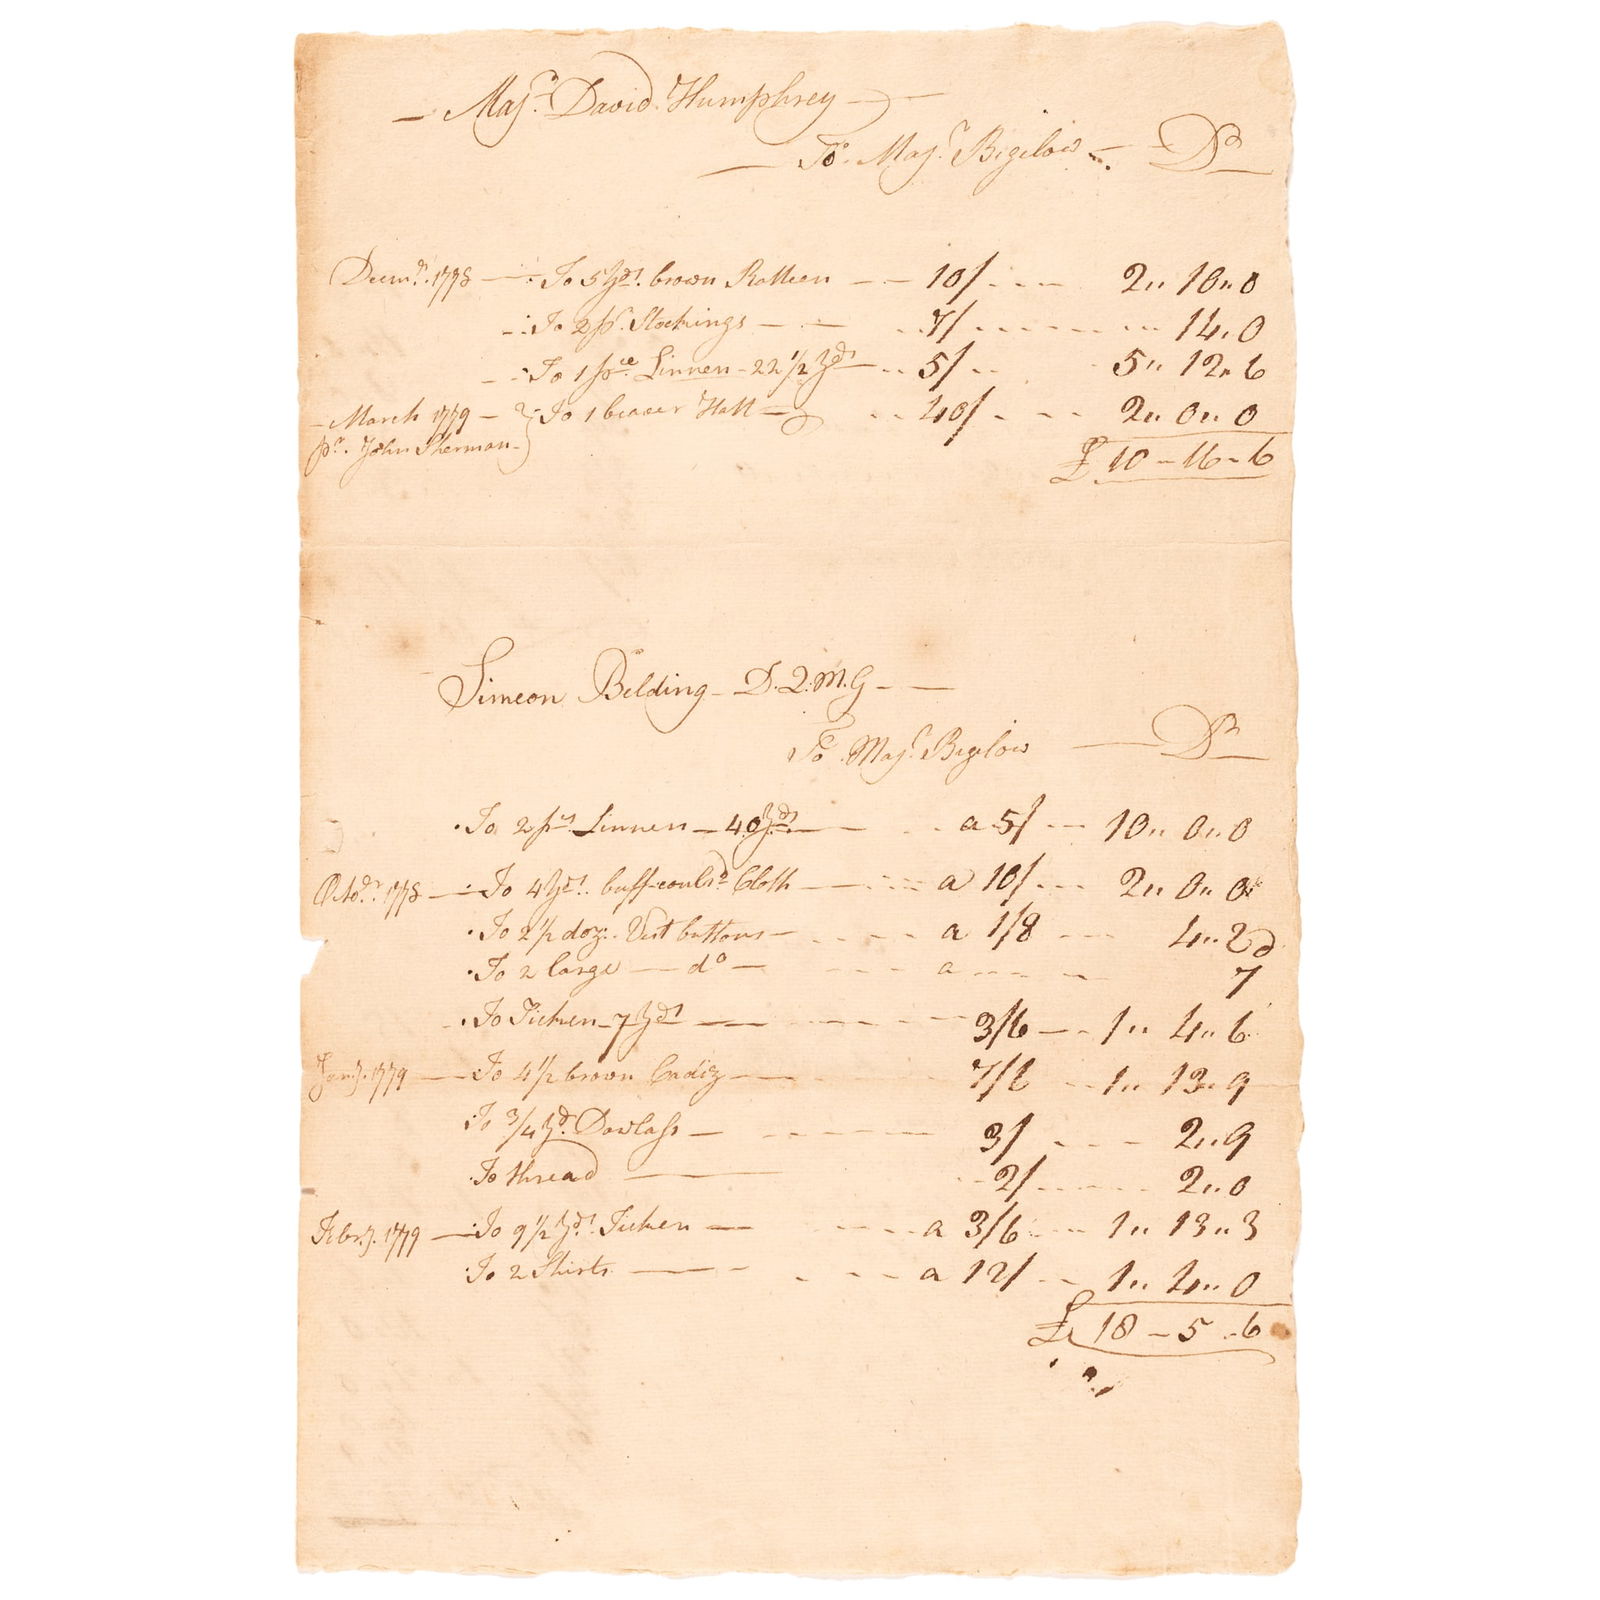 Majr. David Humphrey
To Majr. Bigelow Dr
Decemr. 1778 To 5 Yds. brown Ratteen 10/ 2 " 10 " 0
To 2 pr. Stockings 7/ 14 " 0
To 1 pce Linnen 22 1/2 Yds 5/ 5 " 12 " 6
March 1779 To 1 beaver Hatt 40/ 2 " 0 " 0
pr. John Sherman
£ 10 - 16 - 6
Simeon Belding D.Q.M.G
To Majr. Bigelow Dr
To 2 ps Linnen 40 Yds a 5/ 10 " 0 " 0
Octobr. 1778 To 4 Yds. buff-coulrd Cloth a 10/ 2 " 0 " 0
To 2 1/2 doz. Vest buttons a 1/8 4 " 2d
To 2 large do a 7
To Ticken 7 Yds 3/6 1 " 4 " 6
Jany. 1779 To 4 1/2 brown Cadiz 7/6 1 " 13 " 9
To 3/4 Yd. Dowlass 3/ 2 " 9
To thread 2/ 2 " 0
Febry. 1779 To 9 1/2 Yds. Ticken a 3/6 1 " 13 " 3
To 2 Shirts a 12/ 1 " 4 " 0
£ 18 - 5 - 6